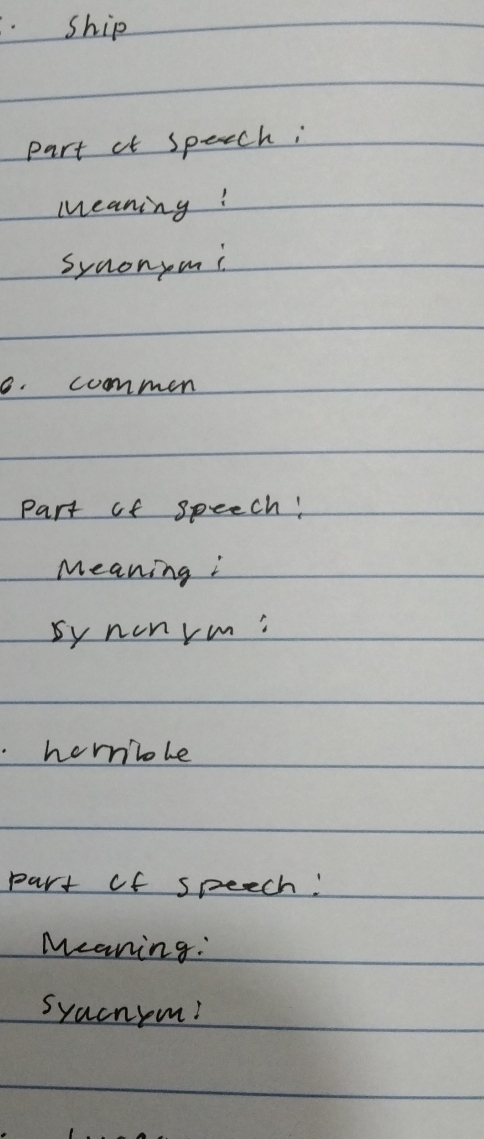 ship
Part of speech :
Meaning :
Synonym :
6. common
Part of speech :
Meaning :
Synonym :
horrible
Part of speech :
Meaning :
Synonym :